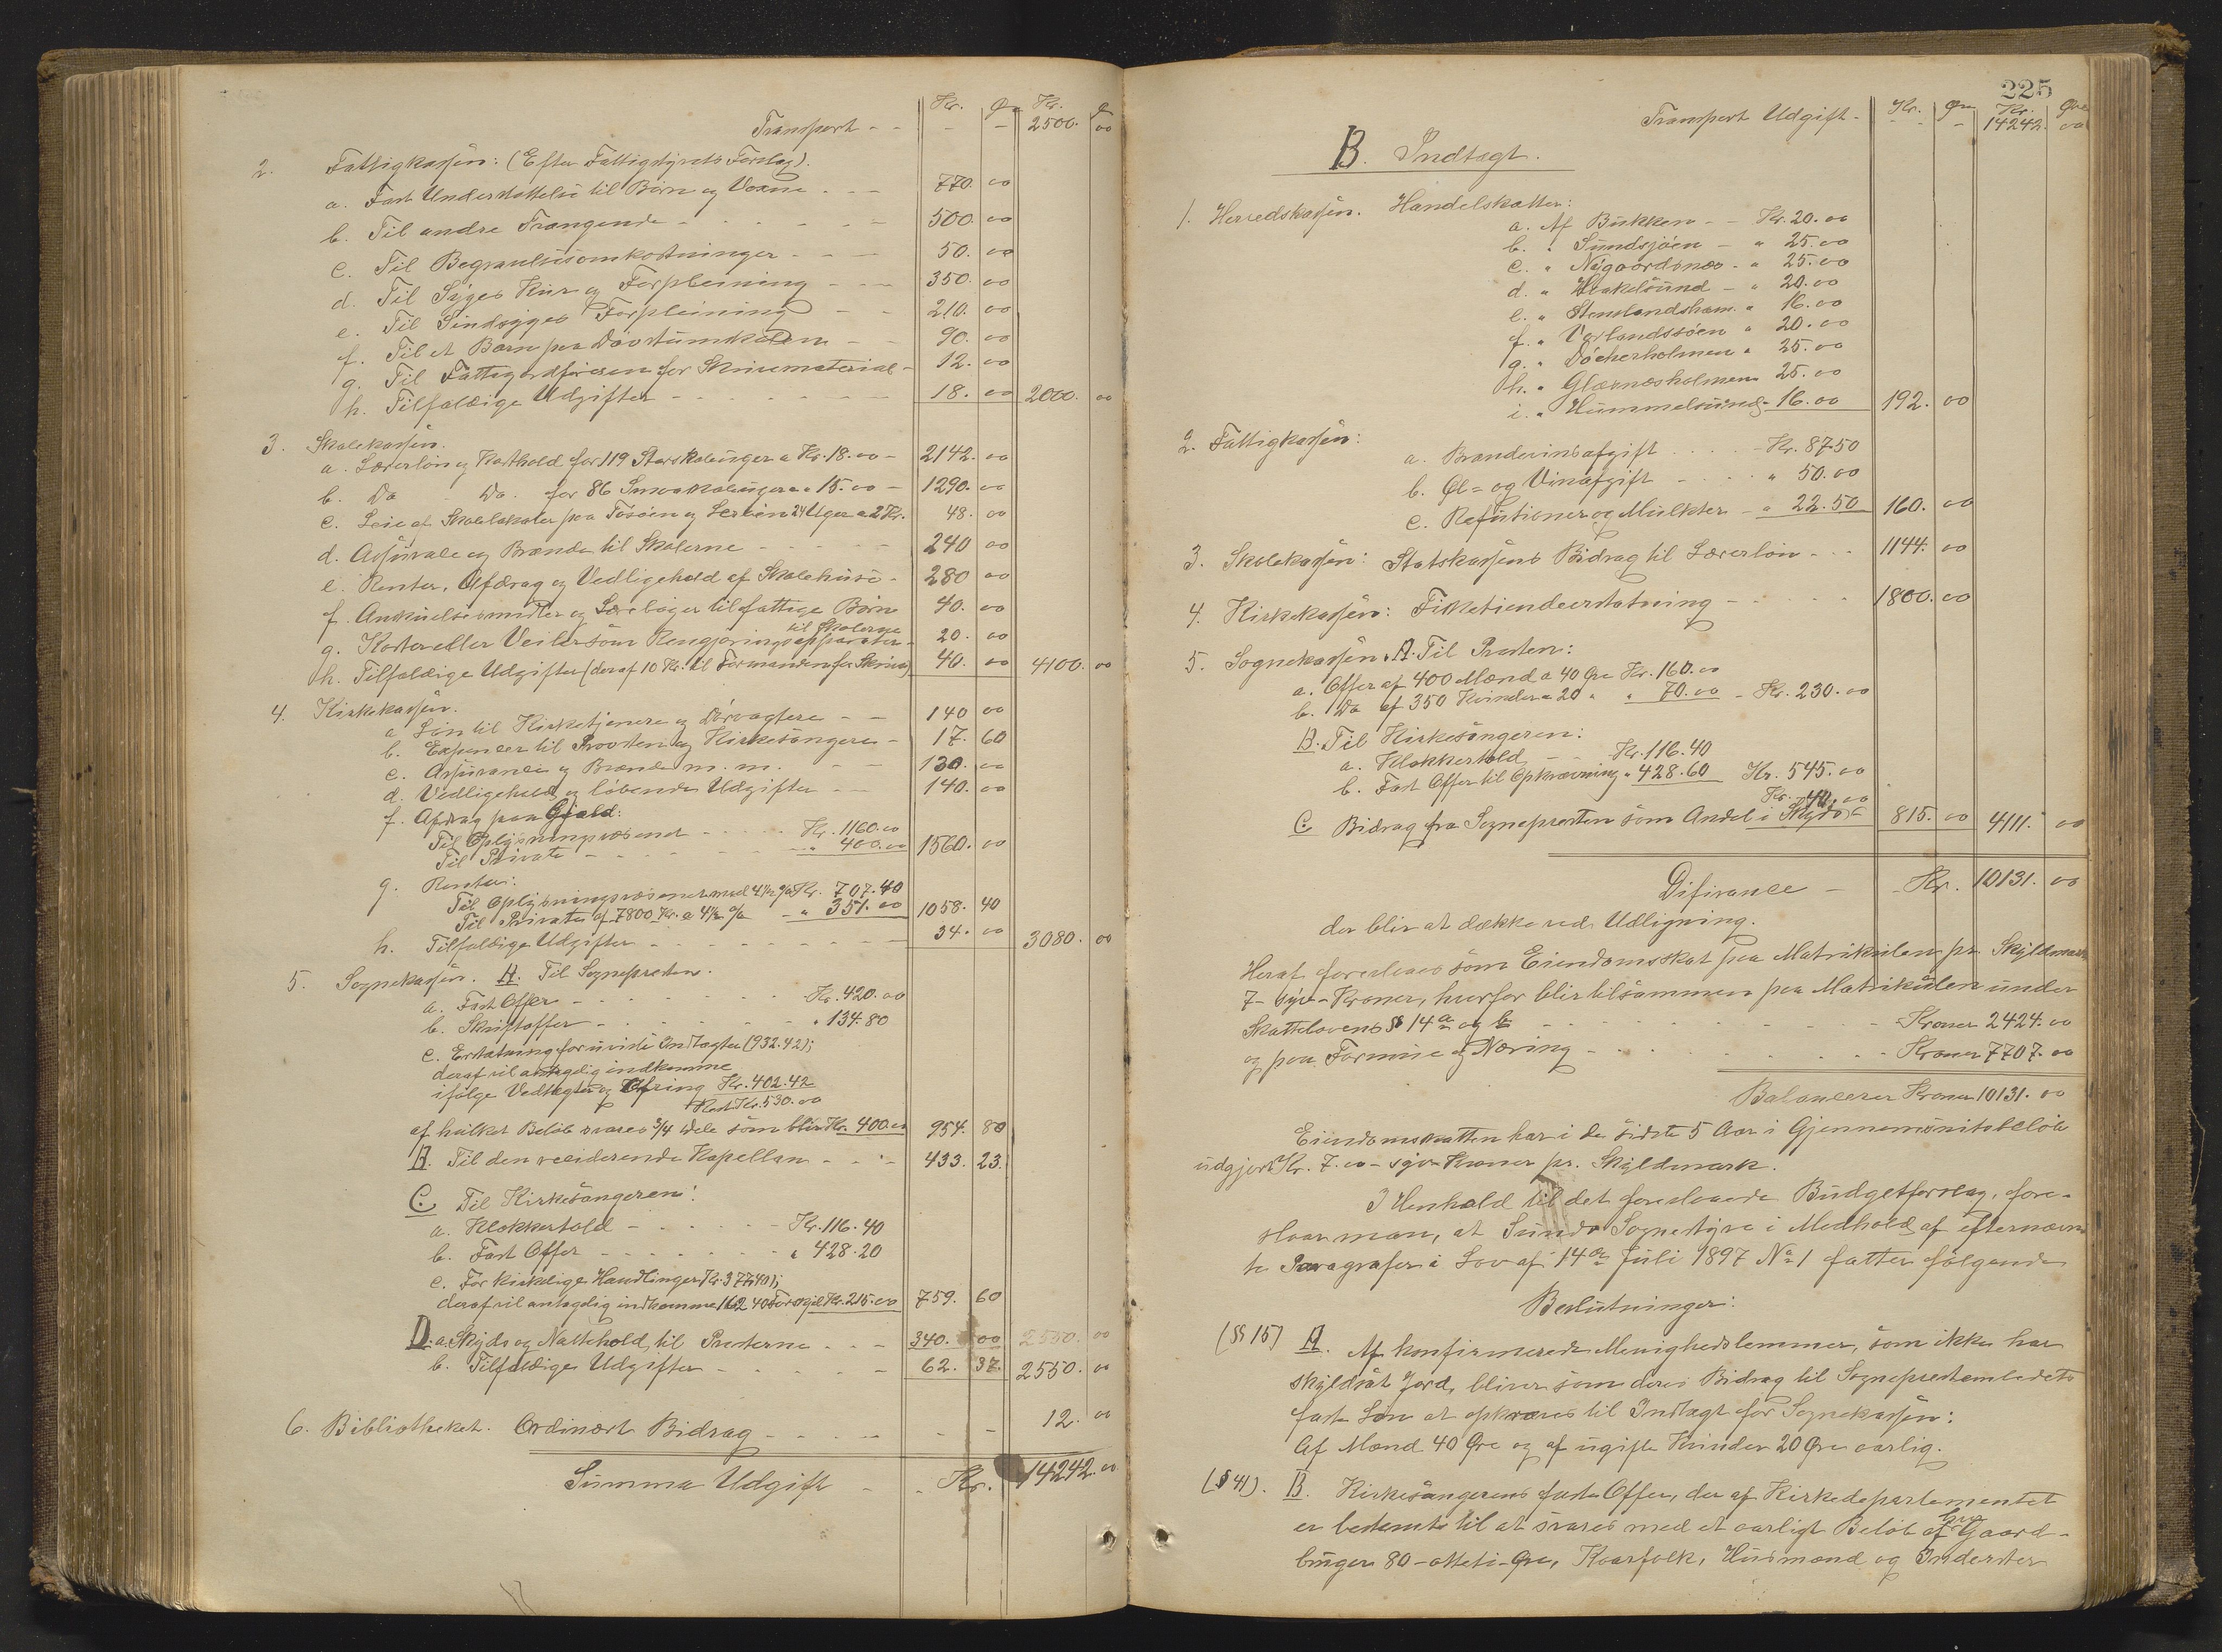 Kr. Ø Kr. Ø
Transport - - - - 2500. 00
2. Fattigkassen: (Efter Fattigstyrets Forslag).
a. Fast Understøttelse til Børn og Voxne - - - 770. 00
b. Til andre Trængende - - - - - 500. 00
c. Til Begravelsesomkostninger - - - 50. 00
d. Til Syges Kur og Forpleining - - - 350. 00
e. Til Sindsyges Forpleining - - 210. 00
f. Til et Barn paa Døvstumskolen - - 90. 00
g. Til Fattigordføreren for Skrivematerial - 12. 00
h. Tilfældige Udgifter - - - - - - 18. 00 2000. 00
3. Skolekassen.
a. Lærerløn og Kosthold for 119 Storskoleuger a Kr. 18.00 - 2142. 00
b. Do Do. for 86 Smaaskoleuger a " 15.00 - 1290. 00
c. Leie af Skolelokaler paa Tosøen og Lerøen 24 Uger a 2 Kr. 48. 00
d. Assurance og Brænde til Skolerne - - - - 240 00
e. Renter, Afdrag og Vedligehold af Skolehuse - 280 00
f. Anskuelsesmidler og Lærebøger til fattige Børn 40. 00
til Skolerne
g. Karter eller Veiler som Rengjøringsapparater - 20. 00
h. Tilfældige Udgifter (deraf 10 Kr. til Formanden for Skriv.) 40. 00 4100. 00
4. Kirkekassen.
a Løn til Kirketjenere og Dørvogtere - - 140 00
b. Expencer til Provsten og Kirkesangeren - 17. 60
c. Assurance og Brænde m. m. - - 130. 00
d. Vedligehold og løbende Udgifter - - 140. 00
f. Afdrag paa Gjæld:
Til Oplysningsvæsenet - - - - Kr. 1160.00
Til Private - - - - - - - " 400.00 1560. 00
g. Renter:
Til Oplysningsvæsenet med 4½ % Kr. 707.40
Til Private af 7800 Kr. a 4½ % - " 351.00 1058. 40
h. Tilfældige Udgifter - - - - - - - 34. 00 3080. 00
5. Sognekassen. A. Til Sognepresten.
a. Fast Offer - - - - - - - Kr. 420.00
b. Skriftoffer - - - - - - " 134.80
c. Erstatning for uvisse Indtægter (932.42);
deraf vil antagelig indkomme
ifølge Vedtægter og Ofring Kr. 402.42
Rest Kr. 530.00
af hvilket Beløb svares 3/4 Dele som bliver Kr. 400.00 954. 80
B. Til den residerende Kapellan - - - 433. 23.
C. Til Kirkesangeren:
a. Klokkertold - - - - - Kr. 116.40
b. Fast Offer - - - - - - " 428.20
c. For kirkelige Handlinger (Kr. 377.40);
deraf vil antagelig indkomme 162 40 Forskjel Kr. 215.00 759. 60
D. a. Skyds og Nattehold til Presterne - - - 340. 00 2550. 00
b. Tilfældige Udgifter - - - - - 62. 37. 2550. 00
6. Bibliotheket. Ordinært Bidrag - - - - - - 12. 00
Summa Udgift - - Kr. 14242.00
225
Transport Udgift - Kr. Øre Kr. Øre
- - - 14242. 00
B. Indtægt.
1. Herredskassen. Handelskatter:
a. Af Bukken - - Kr. 20.00
b. " Sundsjøen - " 25.00
c. " Nygaardsnæs - " 25.00
d. " Krakelsund - " 20.00
e. " Stenslandsham. " 16.00
f. " Vorlandssøen " 20.00
g. " Döcherholmen " 25.00
h. " Glærnesholmen 25.00
i. " Hummelsund - 16.00 192. 00
2. Fattigkassen:
a. Brændevinsafgift - - - - Kr. 87.50
b. Øl- og Vinafgift - - - - " 50.00
c. Refusioner og Mulkter - " 22.50 160. 00
3. Skolekassen: Statskassens Bidrag til Lærerløn - - - 1144. 00
4. Kirkekassen: Fisketiendeerstatning - - - - - 1800. 00
5. Sognekassen: A. Til Presten:
a. Offer af 400 Mænd a 40 Øre Kr. 160.00
b. Do af 350 Kvinder a 20 " " 70.00 - Kr. 230.00
B. Til Kirkesangeren:
a. Klokkertold - - - Kr. 116.40
b. Fast Offer til Opkrævning " 428.60 Kr. 545.00
Kr. 40.00
C Bidrag fra Sognepresten som Andel i Skyds 815. 00 4111. 00
Diferance - - Kr. 10131. 00
der blir at dække ved Udligning.
Heraf foreslaaes som Eiendomsskat paa Matrikulen pr. Skyldmark
7- syv - Kroner, hvorfor blir tilsammen paa Matrikulen under
Skattelovens §§ 14 a og b - - - - - - - Kroner 2424.00
og paa Formue og Næring - - - - - - - Kroner 7707.00
Balancerer Kroner 10131.00
Eiendomsskatten har i de sidste 5 Aar i Gjennemsnitsbeløb
udgjort Kr. 7.00 - syv Kroner pr. Skyldmark.
I Henhold til det foreslaaede Budgetforslag, fore-
slaar man, at Sunds Sognestyre i Medhold af efternævn-
te Paragrafer i Lov af 14de Juli 1897 No 1 fatter følgende
Beslutninger:
(§§ 15) A. Af konfirmerede Menighedslemmer, som ikke har
skyldsat Jord, bliver som deres Bidrag til Sogneprestembedets
faste Løn at opkræves til Indtægt for Sognekassen:
Af Mænd 40 Øre og af ugifte Kvinder 20 Øre aarlig.
(§ 41). B. Kirkesangerens faste Offer, der af Kirkedepartementet
er bestemt til at svares med et aarligt Beløb af hver Gaard-
bruger 80 - otteti - Øre, Kaarfolk, Husmænd og Inderster